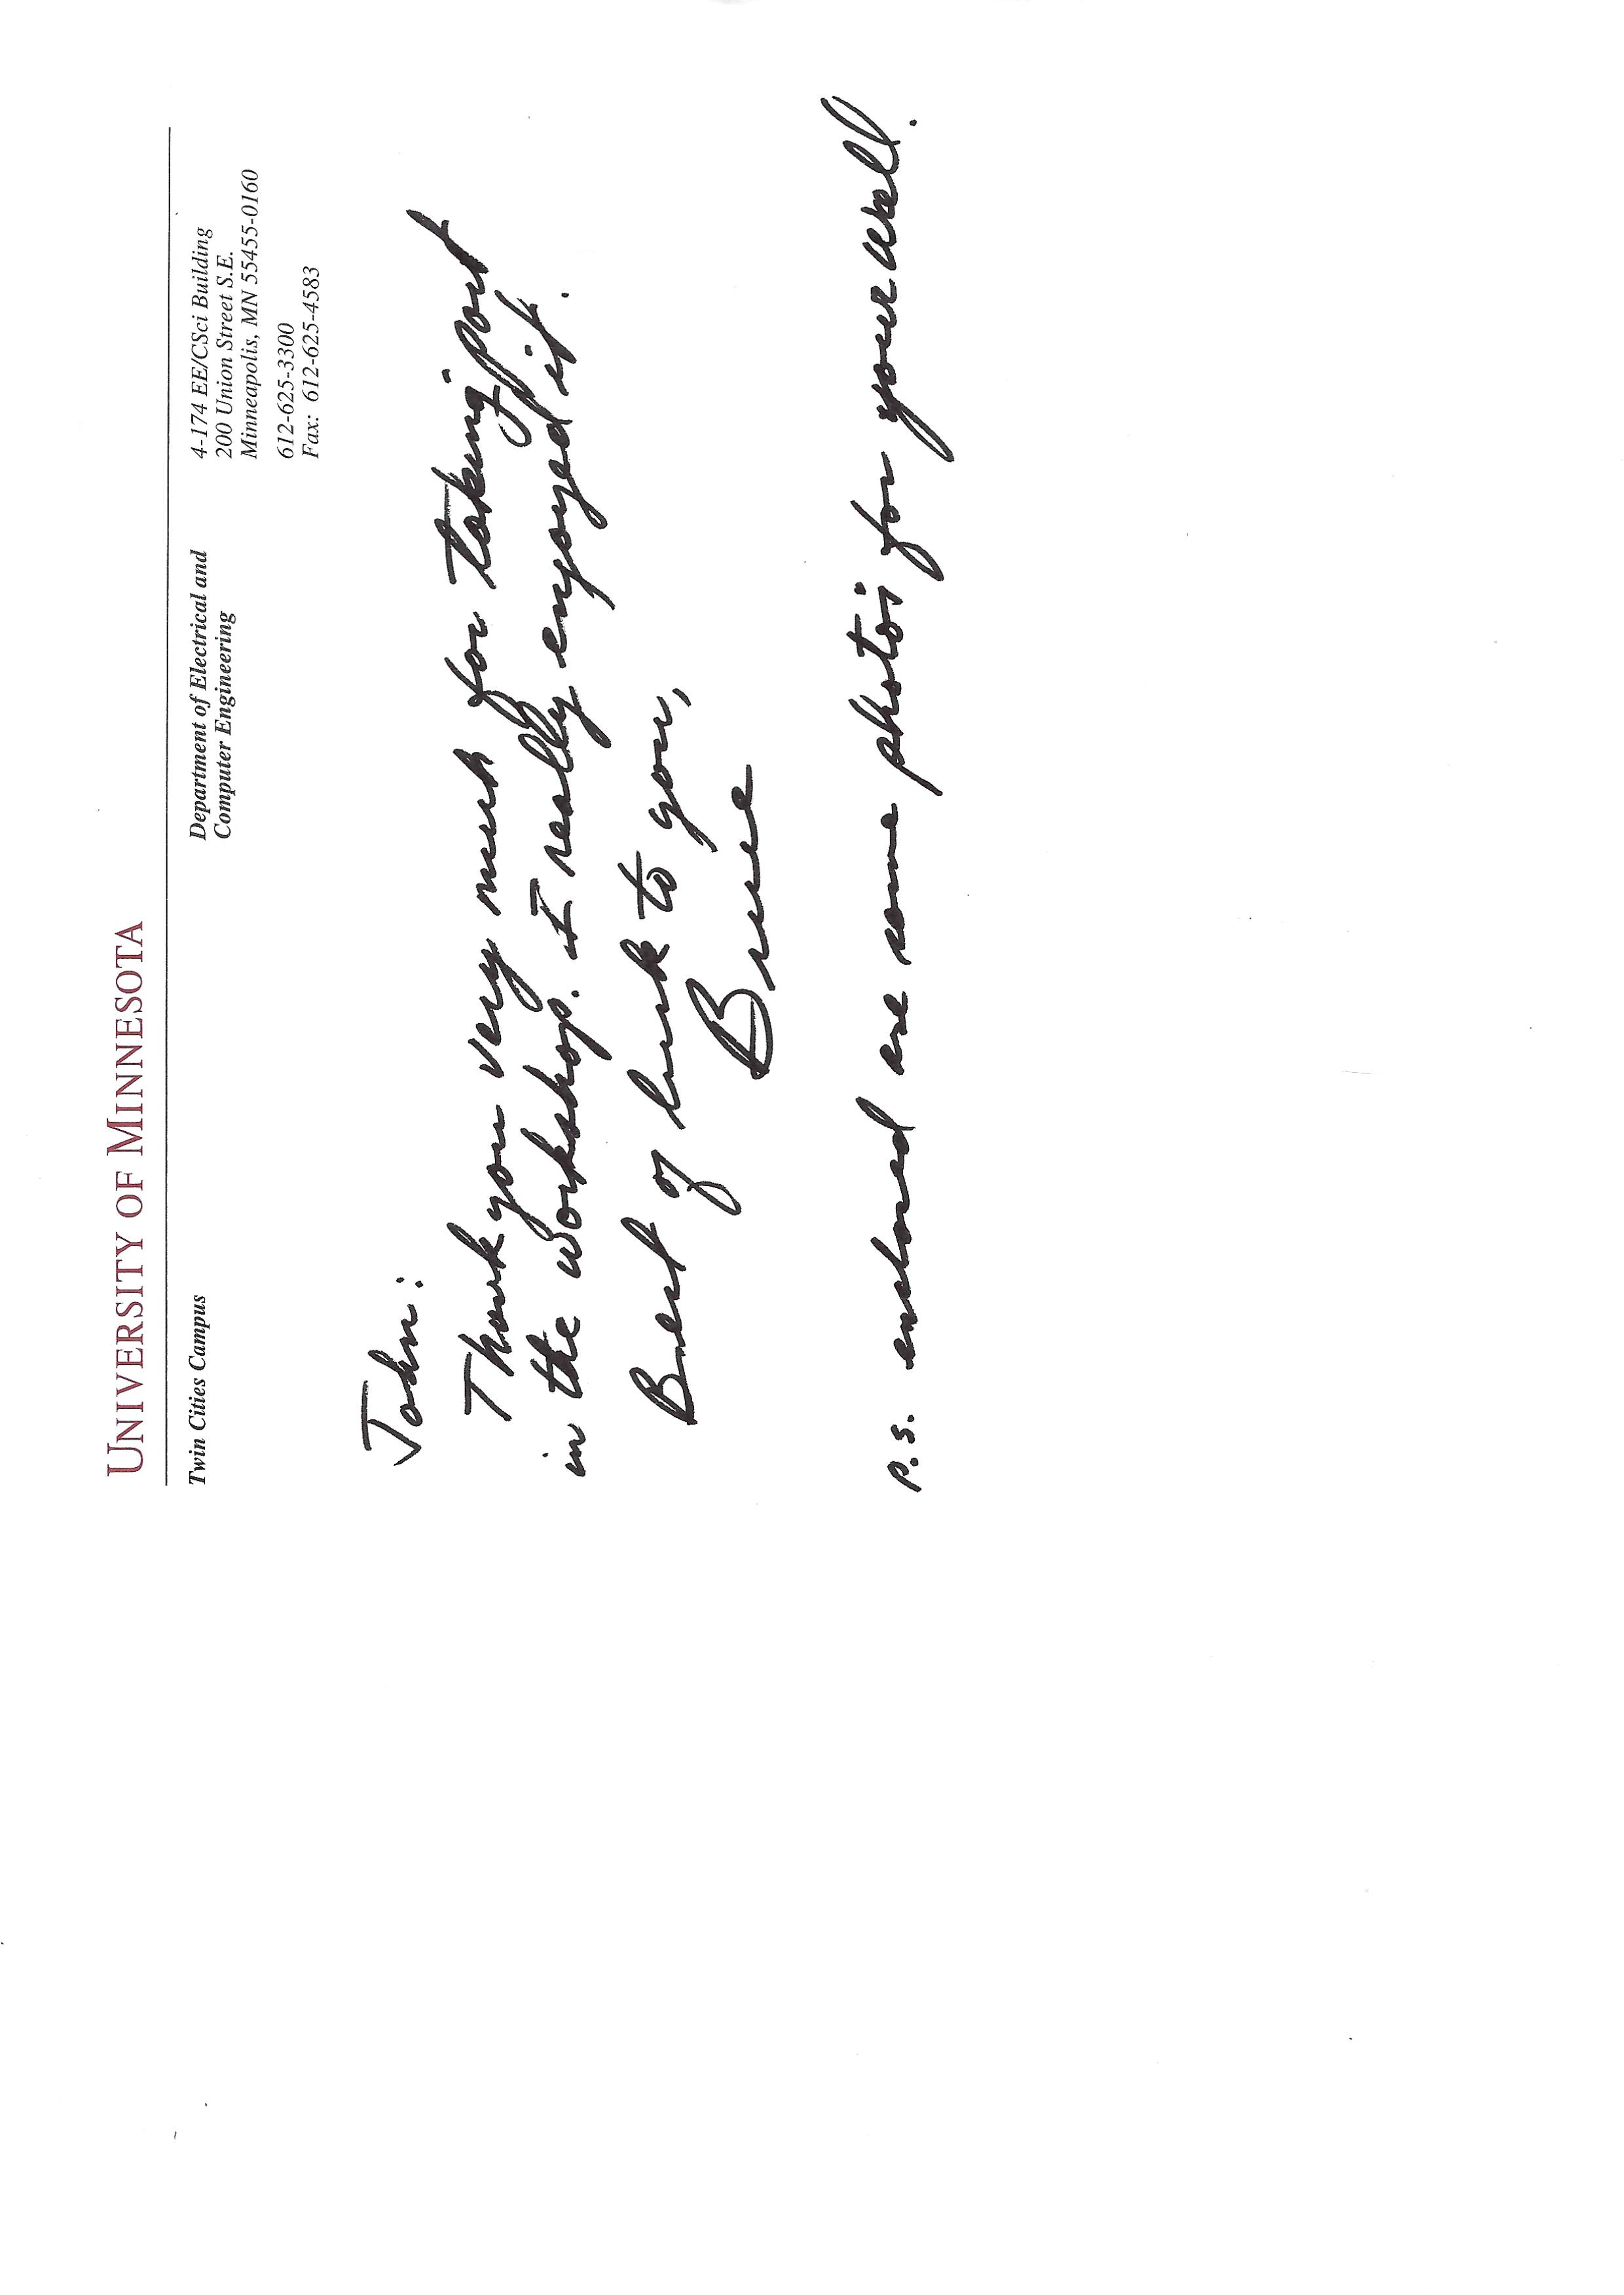 UNIVERSITY OF MINNESOTA
Twin Cities Campus
Department of Electrical and
Computer Engineering
4-174 EE/CSci Building
200 Union Street S.E.
Minneapolis, MN 55455-0160
612-625-3300
Fax: 612-625-4583
John:
Thank you very much for taking part
in the workshop. I really enjoyed it.
Best of luck to you,
Bruce
P.S. enclosed are some photos for your wall.